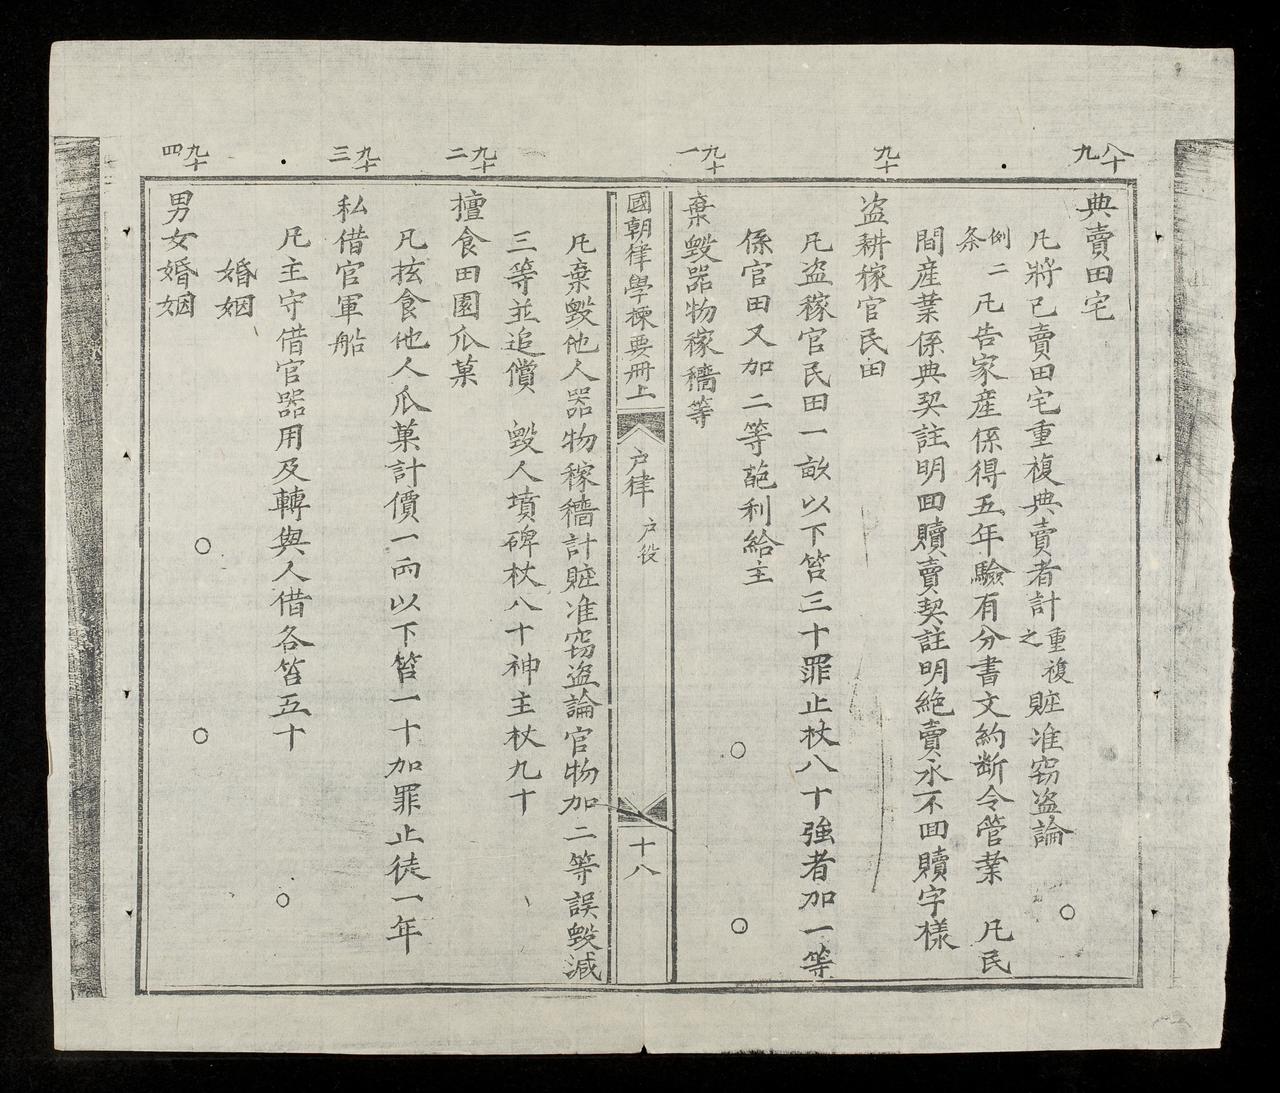 八十九
典賣田宅
凡將已賣田宅重複典賣者計重複之賍准窃盗論
条例二 凡告家產係得五年驗有分書文約断令管業 凡民
間產業係典契註明回贖賣契註明絶賣永不回贖字樣
九十
盗耕稼官民田
凡盗稼官民田一畝以下笞三十罪止杖八十強者加一等
係官田又加二等苑利給主
九十一
棄毀器物稼穡等
國朝律學揀要冊上
户律 户役
十八
凡棄毀他人器物稼穡計賍准窃盗論官物加二等誤毀減
三等並追償 毀人墳碑杖八十神主杖九十
九十二
擅食田園瓜菓
凡擅食他人瓜菓計價一両以下笞一十加罪止徒一年
九十三
私借官軍船
凡主守借官器用及轉與人借各笞五十
婚姻
九十四
男女婚姻